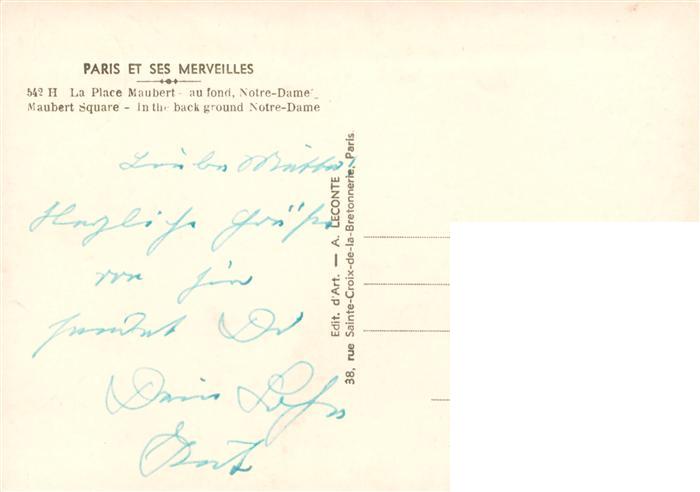 PARIS ET SES MERVEILLES
542 H La Place Maubert - au fond, Notre-Dame
Maubert Square - In the back ground Notre-Dame
Liebe Mutter!
Herzliche Grüße
von hier
sendet Dir
Dein Sohn
Edit. d'Art. — A. LECONTE
38, rue Sainte-Croix-de-la-Bretonnerie, Paris